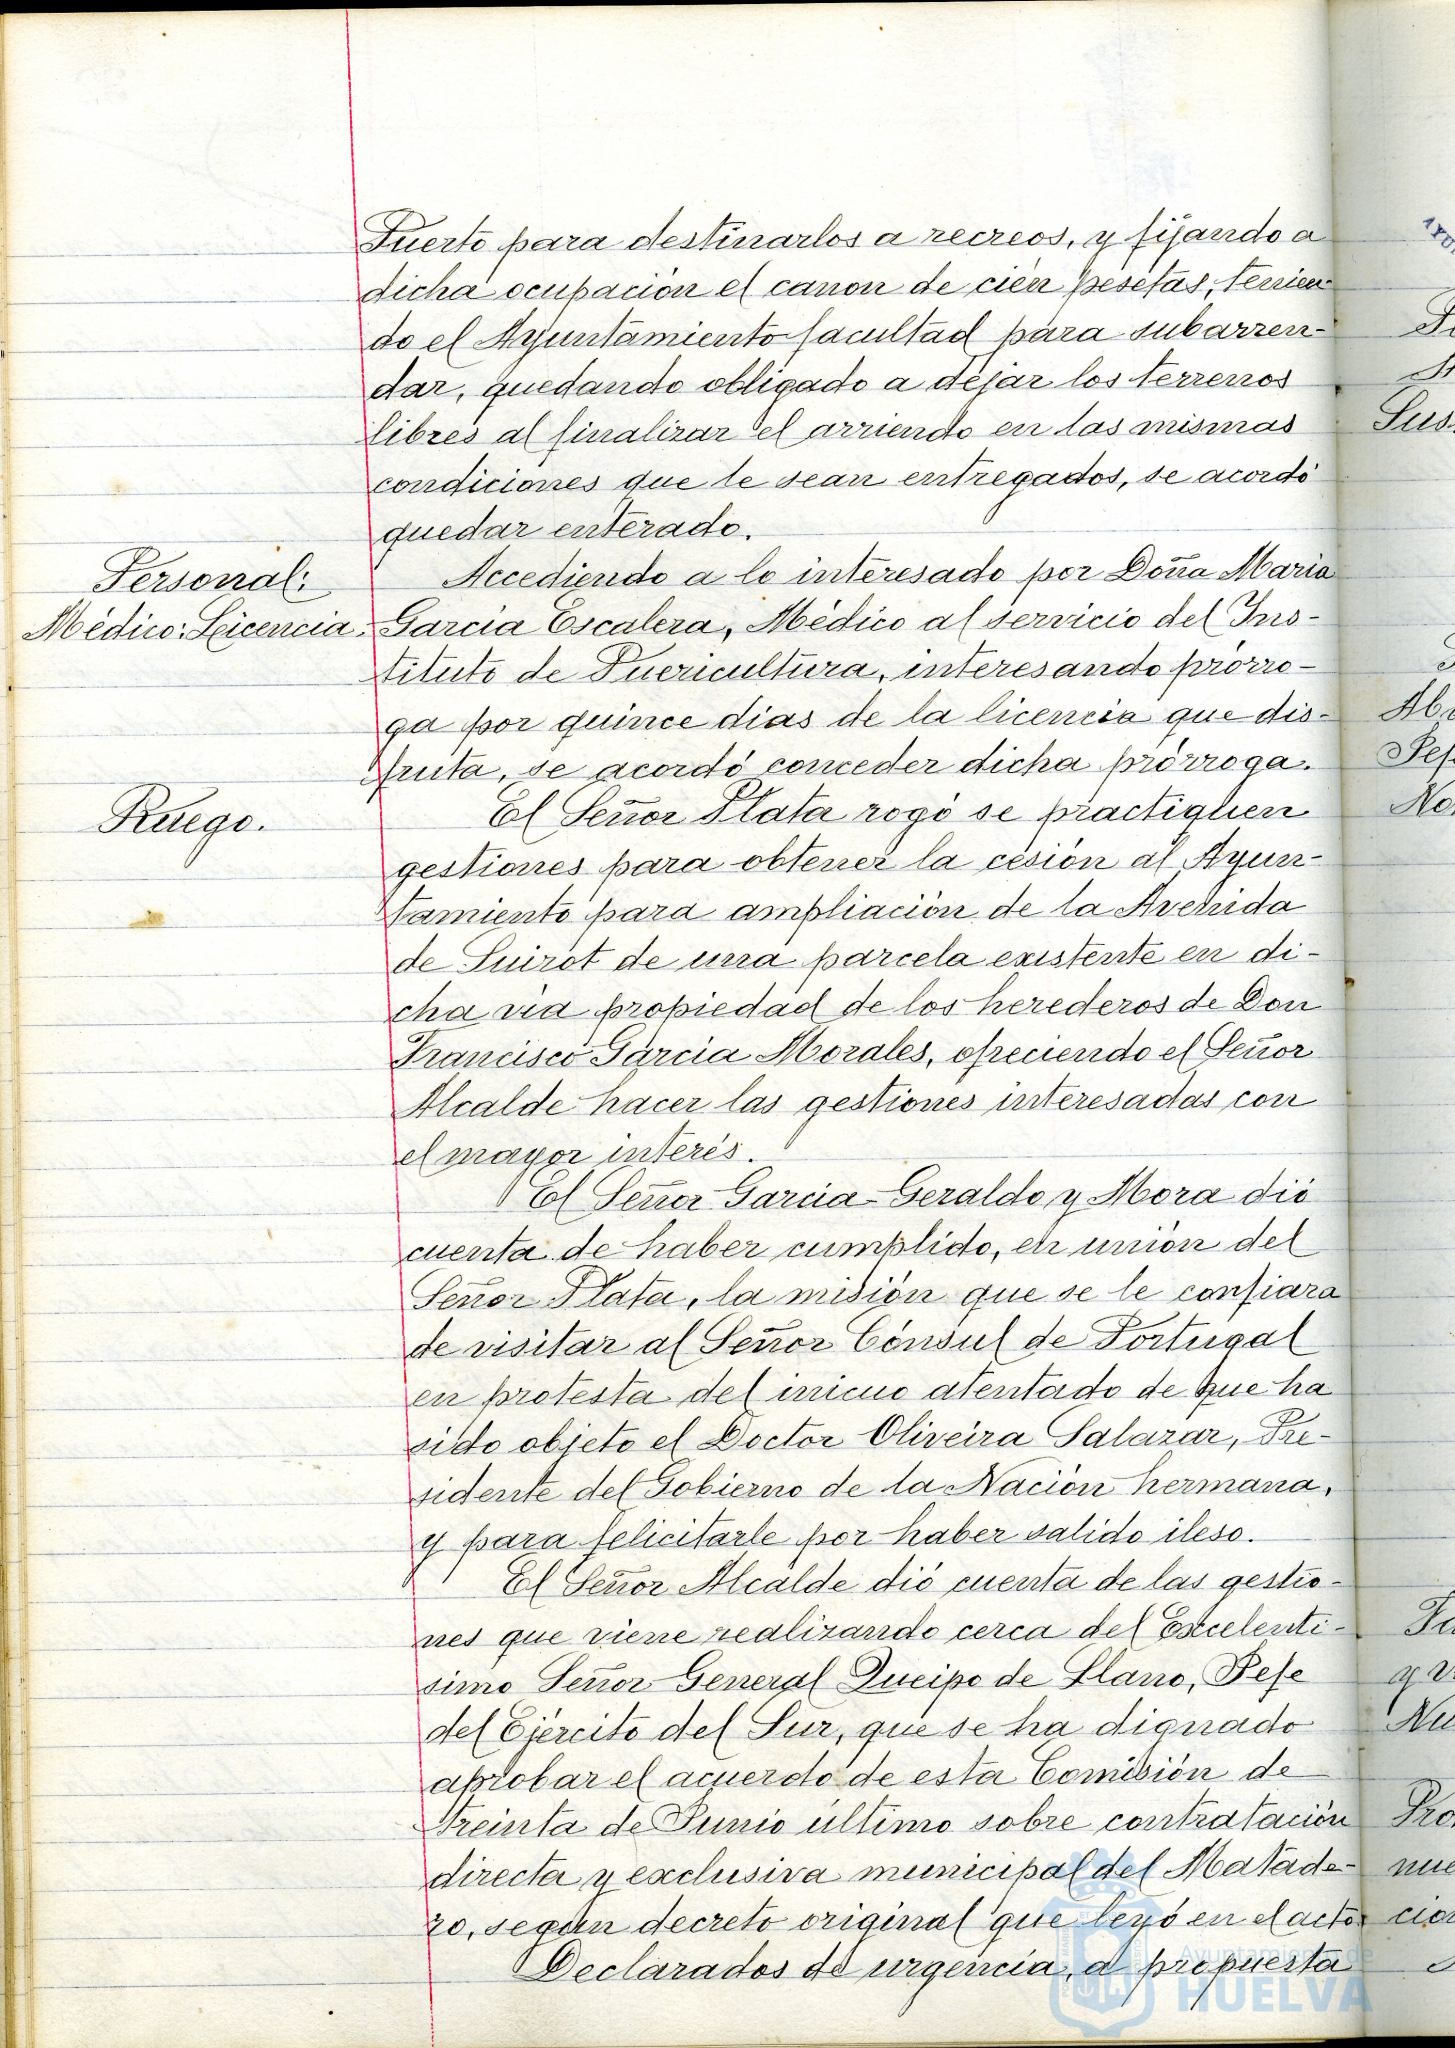 Puerto para destinarlos a recreos, y fijando a
dicha ocupación el canon de cien pesetas, tenien
do el Ayuntamiento facultad para subarren-
dar, quedando obligado a dejar los terrenos
libres al finalizar el arriendo en las mismas
condiciones que le sean entregados, se acordó
quedar enterado.
Personal:
Médico: Licencia.
Accediendo a lo interesado por Doña Maria
Garcia Escalera, Médico al servicio del Ins-
tituto de Puericultura, interesando prórro-
ga por quince dias de la licencia que dis-
fruta, se acordó conceder dicha prórroga.
Ruego.
El Señor Plata rogó se practiquen
gestiones para obtener la cesión al Ayun-
tamiento para ampliación de la Avenida
de Guirot de una parcela existente en di-
cha via propiedad de los herederos de Don
Francisco Garcia Morales, ofreciendo el Señor
Alcalde hacer las gestiones interesadas con
el mayor interés.
El Señor Garcia-Geraldo y Mora dió
cuenta de haber cumplido, en unión del
Señor Plata, la misión que se le confiara
de visitar al Señor Cónsul de Portugal
en protesta del inicuo atentado de que ha
sido objeto el Doctor Oliveira Salazar, Pre-
sidente del Gobierno de la Nación hermana,
y para felicitarle por haber salido ileso.
El Señor Alcalde dió cuenta de las gestio-
nes que viene realizando cerca del Excelenti-
simo Señor General Queipo de Llano, Jefe
del Ejército del Sur, que se ha dignado
aprobar el acuerdo de esta Comisión de
treinta de Junio último sobre contratación
directa y exclusiva municipal del Matade-
ro, según decreto original que leyó en el acto
Declarados de urgencia, a propuesta
Ayuntamiento de
HUELVA